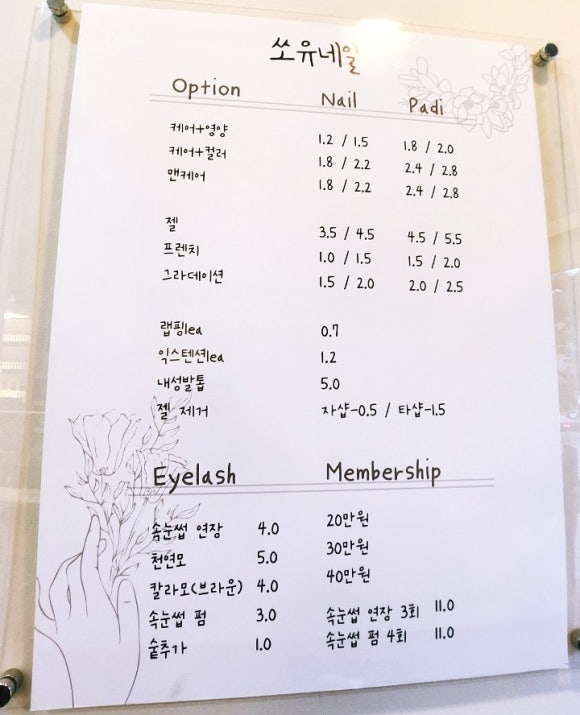 쏘유네일
Option Nail Padi
케어+영양 1.2 / 1.5 1.8 / 2.0
케어+컬러 1.8 / 2.2 2.4 / 2.8
맨케어 1.8 / 2.2 2.4 / 2.8
젤 3.5 / 4.5 4.5 / 5.5
프렌치 1.0 / 1.5 1.5 / 2.0
그라데이션 1.5 / 2.0 2.0 / 2.5
랩핑1ea 0.7
익스텐션1ea 1.2
내성발톱 5.0
젤 제거 자샵-0.5 / 타샵-1.5
Eyelash
속눈썹 연장 4.0
천연모 5.0
칼라모(브라운) 4.0
속눈썹 펌 3.0
숱추가 1.0
Membership
20만원
30만원
40만원
속눈썹 연장 3회 11.0
속눈썹 펌 4회 11.0